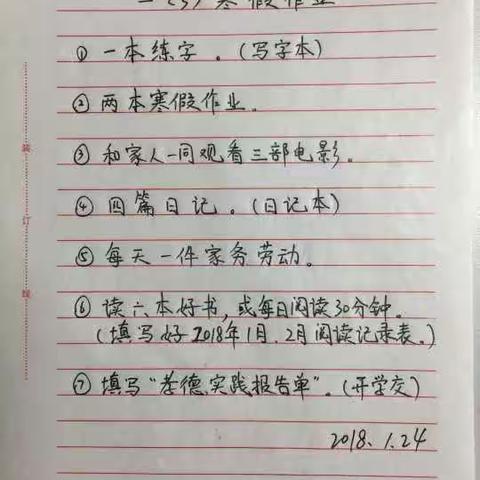 一(3)寒假作业
① 一本练字。(写字本)
② 两本寒假作业.
③ 和家人一同观看三部电影。
④ 四篇日记。(日记本)
⑤ 每天一件家务劳动。
⑥ 读六本好书,或每日阅读30分钟。
(填写好2018年1月.2月阅读记录表。)
⑦ 填写"孝德实践报告单"。(开学交)
2018.1.24
装
订
线